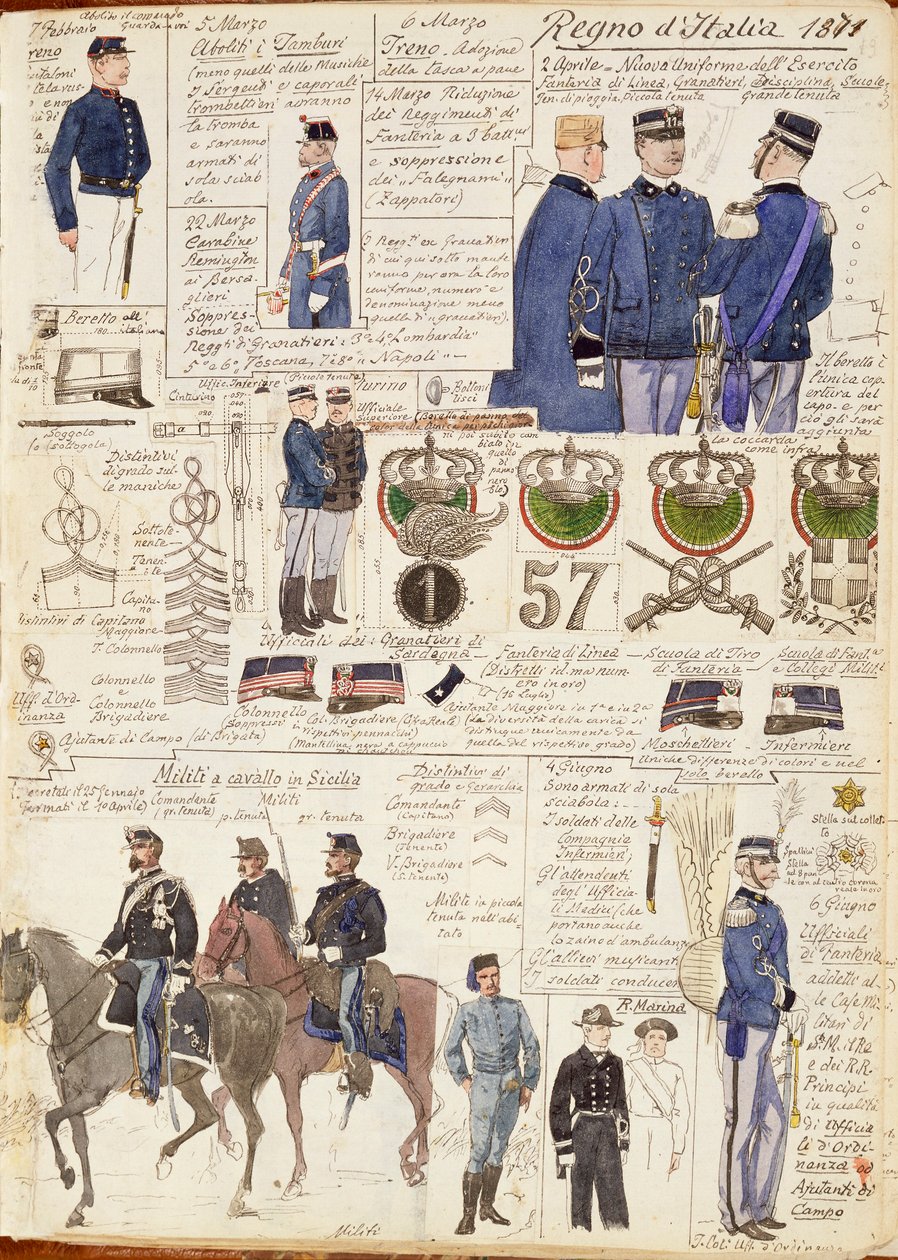 Regno d'Italia 1871
Abolito il comando
7 Febbraio
Treno
5 Marzo
Aboliti i Tamburi
(meno quelli delle Musiche
I Sergenti e caporali
trombettieri avranno
la tromba
e saranno
armati di
sola sciab
ola.
22 Marzo
Carabine
Remington
ai Bersa-
glieri
Soppres-
sione dei
Reggti di Granatieri: 3° 4° Lombardia"
5° e 6°, Toscana, 7 e 8° " Napoli" —
6 Marzo
Treno - Adozione
della tasca a pane
14 Marzo Riduzione
dei Reggimenti di
Fanteria a 3 batt.ni
e soppressione
dei „Falegnami"
(Zappatori)
di cui qui sotto mante
ranno per ora la loro
uniforme, numero e
denominazione meno
quella di „granatieri).
2 Aprile = Nuova Uniforme dell'Esercito
Fanteria di Linea, Granatieri, Disciplina, Scuole
Ten. di pioggia. Piccola tenuta
Grande tenuta
soggolo
Il beretto è
l'unica cop
ertura del
capo - e per
ciò gli sarà
aggiunta
la coccarda
come infra
Beretto all'
italiana
180
Soggolo
(o sottogola)
Uffic. Inferiore (Piccola tenuta)
Turino
Cinturino
a
Ufficiale
Superiore (Beretto di panno del
color della tunica pei pochi giorni
ni poi subito can
biato in
quello
di
panno
nero
Bottoni
lisci
Distintivi
di grado sul-
le maniche
Sottote-
nente-
Tenen-
te
Capita-
no
Distintivi di Capitano
Maggiore-
T. Colonnello
Colonnello
e
Colonnello
Brigadiere
1
57
Ufficiali dei: Granatieri di
Sardegna
Fanteria di Linea
(Distretti id. ma num-
ero in oro)
(16 Luglio)
Scuola di Tiro
di Fanteria
Scuola di Fant.a
e Collegi Milit.i
Uff. d'Ord-
inanza
Ajutante di Campo (di Brigata)
Colonnello
(Soppressi i
Col. Brigadiere (Cifra Reale)
rispettivi pennacchi)
(Mantellina nera a cappuccio
Ajutante Maggiore in 1a e in 2a
(La diversità della carica si
distingue unicamente da
quella del rispettivo grado)
Moschettieri - Infermieri
Uniche differenze di colori e nel
solo beretto
Militi a cavallo in Sicilia
(Decretati il 25 Gennaio
Formati il 1° Aprile)
Comandante
(gr. tenuta)
Militi
p. tenuta
gr. tenuta
Distintivi di
grado e Gerarchia
Comandante
(Capitano)
Brigadiere
(Tenente)
V. Brigadiere
(S. tenente)
Militi in piccola
tenuta nell'abi
tato
Militi
4 Giugno
Sono armati di sola
sciabola: -
I soldati delle
Compagnie
Infermieri,
Gli attendenti
degli Ufficia-
li Medici (che
portano anche
lo zaino d'ambulanza
Gl'allievi musicanti
I soldati conducen
R. Marina
Stella sul collet-
to
Spallini
Stella
ad 8 pun
te con al centro corona
reale in oro
6 Giugno
Ufficiali
di Fanteria
addetti al-
le Case Mi-
litari di
S. M. il Re
e dei R.R.
Principi
in qualità
di Ufficia
li d'Ordi-
nanza od
Ajutanti di
Campo
T. Col. Uff. d'Ordinanza